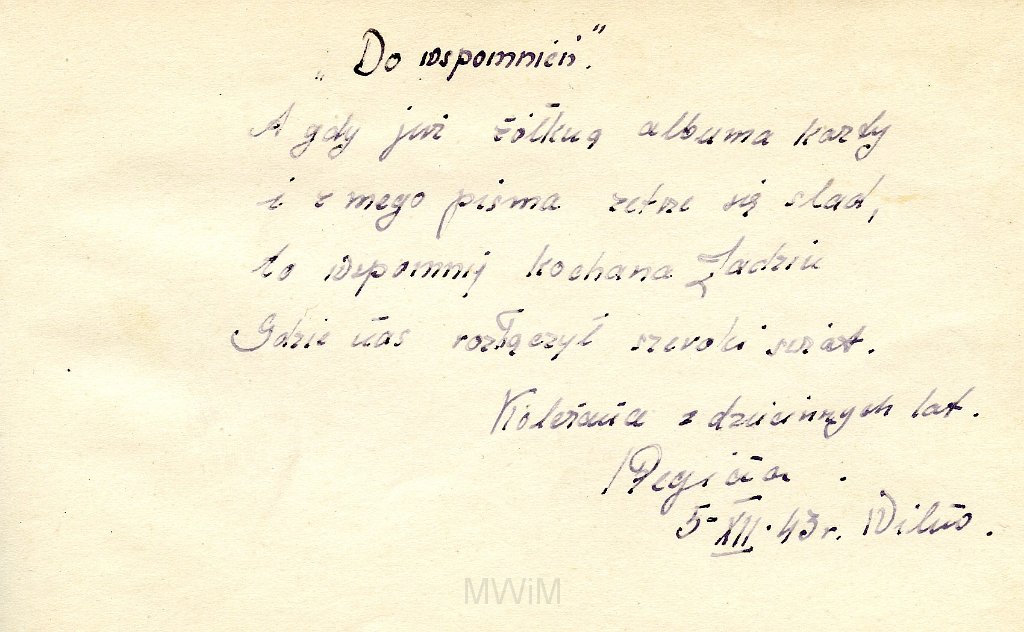 „Do wspomnień."
A gdy już żółkną albuma kardy
i z mego pisma zetrze się slad,
to wspomnij kochana Jadziu
Gdzie nas rozłączył szeroki swiat.
Koleżanka z dziecinnych lat.
Regina.
5-XII.43r. Wilno.
MWiM